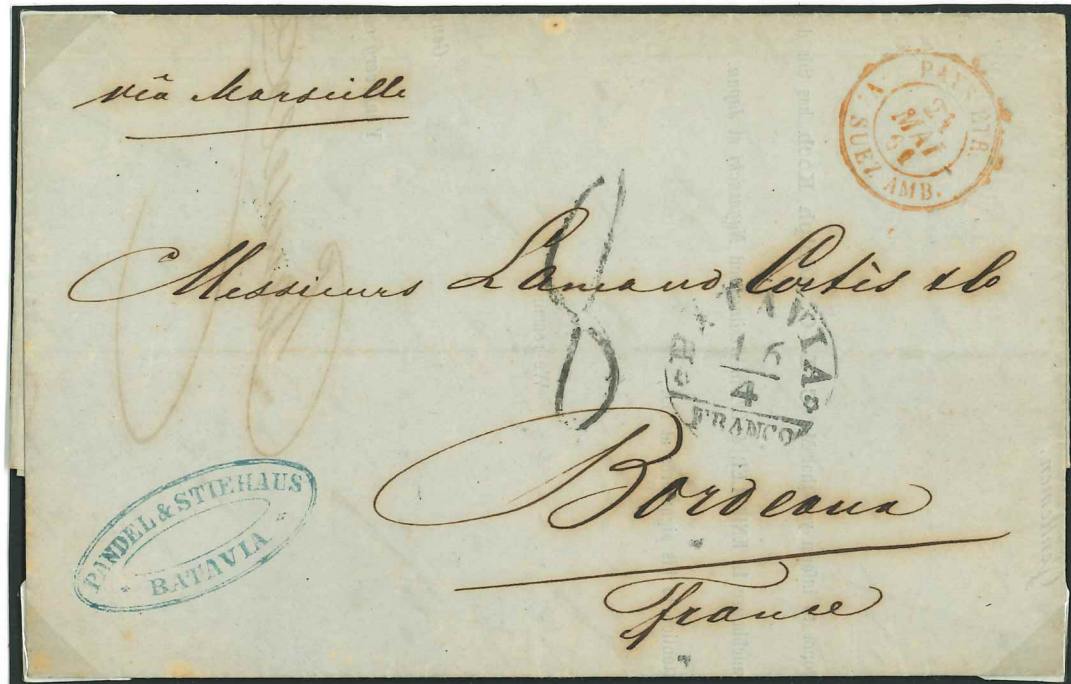 viâ Marseille
PAYS ETR. V. SUEZ AMB.
24
MAI
61
Messieurs Lamano Cortès & Co
8
BATAVIA
16
4
FRANCO
Bordeaux
France
PANDEL & STIEHAUS
BATAVIA